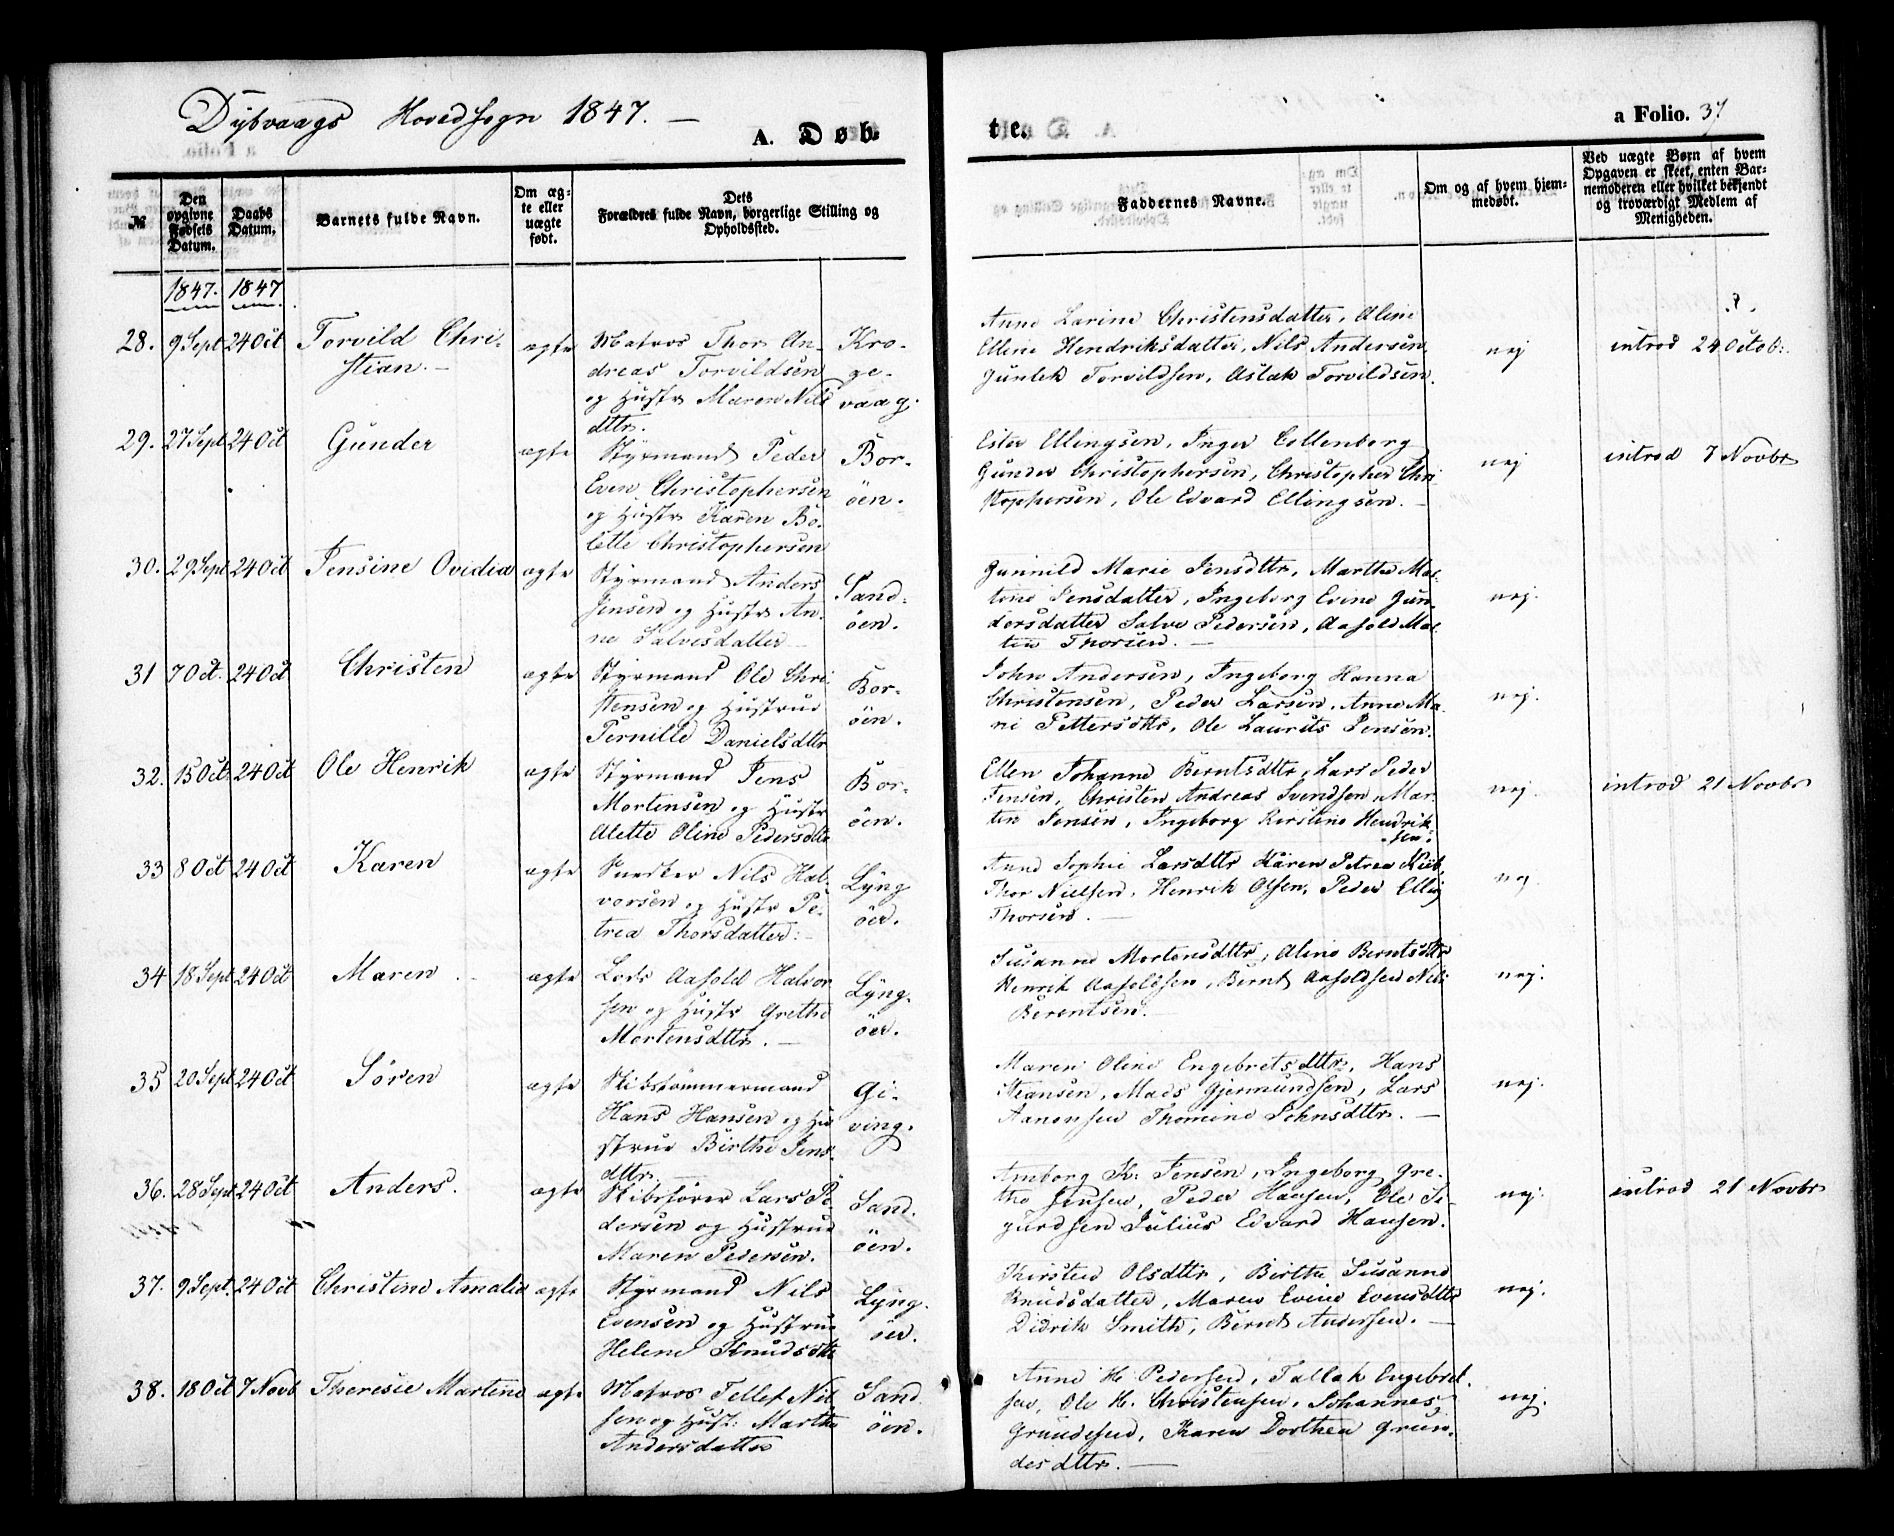 Dybvaags Hovedsogn 1847. —
A. Døb-
te.
a Folio. 37
№
Den opgivne Fødsels Datum.
Daabs Datum.
Barnets fulde Navn.
Om ægte eller uægte født.
Dets Forældres fulde Navn, borgerlige Stilling og Opholdssted.
Faddernes Navne.
Om og af hvem hjemmedøbt.
Ved uægte Børn af hvem Opgaven er skeet, enten Barnemoderen eller hvilket bekjendt og troværdigt Medlem af Menigheden.
1847. 1847
28. 9 Sept 24 Oct Torvild Chri-
stian. —
ægte
Matros Thor An-
dreas Torvildsen
og Hustr Maren Nils
dttr.
Kro-
ge-
vaag.
Anne Larine Christensdatter, Oline
Elline Hendriksdatter, Nils Andersen,
Gunlek Torvildsen, Aslak Torvildsen.
nej
introd 24 Octob:
29. 27 Sept 24 Oct Gunder
ægte
Styrmand Peder
Even Christophersen
og Hustr Karen Bo-
lette Christophersen
Bor-
öen.
Ester Ellingsen, Inger Collenborg
Gunder Christophersen, Christopher Chri
stophersen, Ole Edvard Ellingsen. —
nej
introd 7 Novbr
30. 29 Sept 24 Oct Jensine Ovidia
ægte
Styrmand Anders
Jensen og Hustr An-
ne Salvesdatter —
Sand-
öen.
Gunnild Marie Jensdttr, Marthe Mar-
tine Jensdatter, Ingeborg Evine Gun-
dersdatter Salve Pedersen, Aasold Mar-
tin Thorsen. —
nej.
31 7 Oct. 24 Oct Christen
ægte
Styrmand Ole Chri
stensen og Hustrue
Pernille Danielsdttr
Bor-
öen.
John Andersen, Ingeborg Hanna
Christensen, Peder Larsen, Anne Ma-
rie Pettersdttr, Ole Laurits Jensen.
nej.
32. 15 Oct. 24 Oct Ole Henrik
ægte
Styrmand Jens
Mortensen og Hustr
Alette Oline Pedersdttr
Bor-
öen.
Ellen Johanne Berntsdttr, Lars Peder
Jensen, Christen Andreas Svendsen, Mar-
tin Jensen, Ingeborg Kerstine Hendrik-
sen.
nej.
introd 21 Novbr
33 8 Oct 24 Oct Karen
ægte
Snedker Nils Hal-
vorsen og Hustr Pe-
trea Thorsdatter: —
Lyng
öer.
Anne Sophie Larsdttr Karen Petrea
Thor Nielsen, Henrik Olsen, Peder Elling
Thorsen. —
nej
34 18 Sept 24 Oct Maren.
ægte
Lods Aasold Halvor
sen og Hustr Grethe
Mortensdttr. —
Lyng-
öer.
Susanne Mortensdttr, Aline Berntsdttr
Henrik Aasoldsen, Bernt Aasoldsen Nils
Berentsen. —
nej.
35 20 Sept 24 Oct Sören
ægte
Skibstömmermand
Hans Hansen og Hu
strue Birthe Jens-
dttr.
Gi-
ving.
Maren Oline Engebretsdttr, Hans
Hansen, Mads Gjermundsen, Lars
Aanonsen Thomine Johnsdttr. —
nej.
36. 28 Sept 24 Oct Anders.
ægte
Skibsfører Lars Pe-
dersen og Hustrue
Maren Pedersen.
Sand-
öen.
Amborg K: Jensen, Ingeborg Gre-
the Jensen, Peder Hansen, Ole Si-
gurdsen Julius Edvard Hansen.
nej.
introd 21 Novbr
37. 9 Sept. 24 Oct Christine Amalia
ægte
Styrmand Nils
Evensen og Hustrue
Helene Knudsdttr
Lyng-
öer.
Kirsten Olsdttr, Birthe Susanne
Knudsdatter, Maren Evine Evensdttr
Didrik Smith, Bernt Andersen. —
nej.
38. 18 Oct 7 Novb Theresie Martine
ægte
Matros Tellef Nil
sen og Hust: Marthe
Andersdatter
Sand
öen.
Anne H. Pedersen, Tallak Engebret-
sen, Ole H. Christensen, Johannes
Grundesen, Karen Dorthea Grun-
desdttr. —
nej.